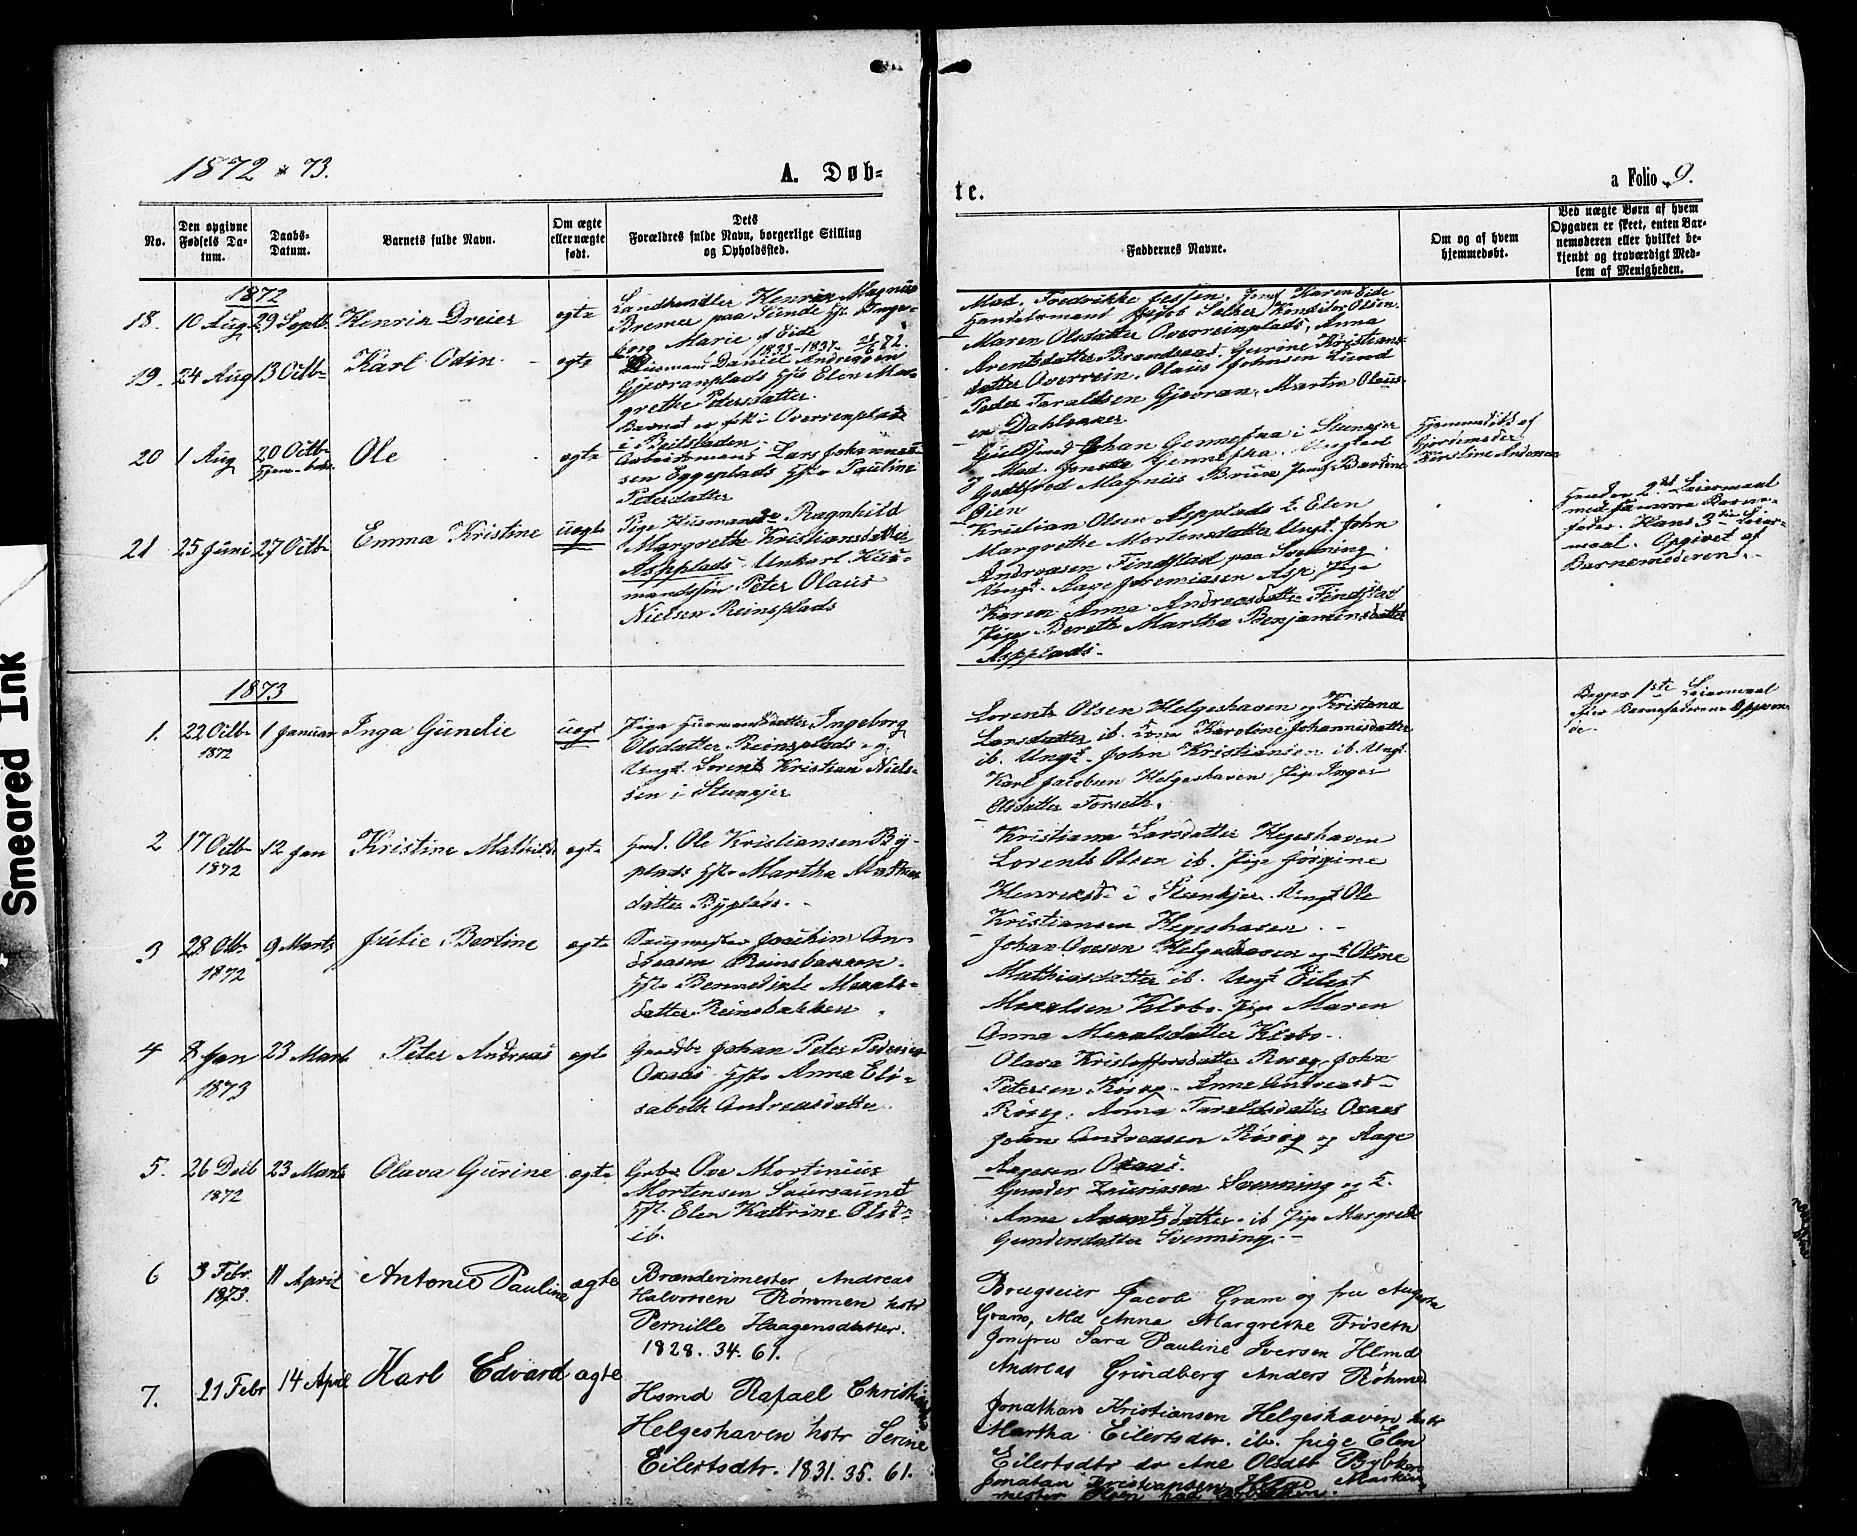 1872 * 73.
A. Døb-
te.
a Folio 9.
No.
Den opgivne Fødsels Da-
tum.
Daabs-
Datum.
Barnets fulde Navn.
Om ægte
eller uægte
født.
Dets
Forældres fulde Navn, borgerlige Stilling
og Opholdssted.
Faddernes Navne.
Om og af hvem
hjemmedøbt.
Ved uægte Børn af hvem
Opgaven er skeet, enten Bar-
nemoderen eller hvilket be-
kjendt og troværdigt Med-
lem af Menigheden.
1872
18. 10 Aug 29 Septb. Henrik Dreier ægte
Landhandler Henrik Magnus
Bremer paa Sunde Hst Inge-
borg Marie f Eide
1833-1837-
Mad. Fredrikke Jessen, Jomf Karen Eide
Handelsmand Konditor Olsen
19. 24 Aug 13 Octb Karl Odin ægte
Husmand Daniel Andreasen
Gjævranplads Hst Elen Mar-
grethe Petersdatter.
Barnet er født i Overreinplads
i Beitstaden
Maren Olsdatter Overreinplads, Anna
Arentsdatter Brandsaas. Gurine Kristians-
datter Overrein. Olaus Johnsen Lund
Peder Taraldsen Gjævran. Martin Olaus-
en Dahlsaker
20 1 Aug 20 Octb Ole ægte
Arbeidsmand Lars Johannes-
sen Eggeplads Hst Pauline
Petersdatter
Johan Gennefka i Stenkjer
Mad. Jonette Gennefka. Ungkarl
Godtfred Magnus Brun Jomf Bartine
Øien
Hjemmedøbt af
Gjordemoder
Kirstine Andersen
21 25 Juni 27 Octb Emma Kristine uægte
Pige Husmandsd Ragnhild
Margrethe Kristiansdatter
Aspplads - Unkarl Hus-
mandssøn Peter Olaus
Nielsen Reinsplads
Kristian Olsen Aspplads & Elen
Margrethe Mortensdatter Ungk. John
Andreasen Findstad paa Svenning
Ungk. Aage Jeremiasen Asp, Pige
Karen Anna Andreasdatter Findstad
Pige Berethe Martha Benjaminsdatter
Aspplads.
Hendes 2det Leiermaal
med samme Barne-
fader. Hans 3die Leier-
maal. Opgivet af
Barnemoderen.
1873
1. 22 Octb 1872 1 Januar Inga Gundie uægt
Pige Husmandsdatter Ingeborg
Olsdatter Reinsplads og
Ungk. Lorents Kristian Niels-
sen i Stenkjer
Lorents Olsen Helgeshaven og Kristiana
Larsdatter ib. Kona Karoline Johannesdatter
ib. Ungk. John Kristiansen ib. Ungk.
Karl Jacobsen Helgeshaven, Pige Inger
Olsdatter Forseth.
Begges 1ste Leiermaal
efter Barnefaderens Opgiven-
de
2 17 Octb 1872 12 Jan Kristine Mathilde ægte
Hmd. Ole Kristiansen By-
plads Hst Martha
datter Byplads.
Kristiana Larsdatter Hegeshaven
Lorents Olsen ib. Pige Jørgine
Henriksd i Stenkjer. Ungk Ole
Kristiansen Hegeshaven.
3 28 Otb. 1872 9 Marts Julie Bertine ægte
Saugmester Joachim An-
dreasen Reinsbakken.
Hst Bennedikte Meralds-
datter Reinsbakken.
Johan Ovesen Helgeshaven og Oline
Mathiasdatter ib. Ungk Eilert
Meralsen Klobo. Pige Maren
Anna Meralsdatter Klobo.
4 8 Jan 1873 23 Marts Peter Andreas ægte
Gaardbr Johan Peter Pedersen
Oxaas Hst Anna Eli-
sabeth Andreasdatter.
Olava Kristoffersdatter Røseg, John
Petersen Røseg. Anne Andreasd
Røseg. Anna Taraldsdatter Oxaas
John Andreasen Røseg og Aage
Aagesen Oxaas.
5. 26 Decb 1872 23 Marts Olava Gurine ægte
Grbr Ove Mortinius
Mortensen Saursaunet
Hst. Elen Kattrine Olsd.
ib.
Gunder Zauriasen Svenning og
Anne Arentsdatter ib Pige Margrethe
Gundersdatter Svenning.
6 3 Febr. 1873. 11 April Antonie Pauline ægte
Brænderimester Andreas
Halvorsen Rømmen hstr
Pernille Haagensdatter.
1828. 34. 61.
Brugseier Jacob Gram og fru Augusta
Gram, Md Anna Margrethe Friseth
Jomfru Sara Pauline Iversen Hlmd
Andreas Grøndberg Anders Røhme
7. 21 Febr 14 April Karl Edvard ægte
Hsmd Rafael Christian
Helgeshaven hstr Serine
Eilertsdtr. 1831. 35. 61.
Jonathan Kristiansen Helgeshaven hstr
Martha Eilertsdtr. ib. pige Elen
Eilertsdtr do Ane Olsdtr Bybkn
Jonatan Kristiansen Maskin-
mester Olsen
Smeared Ink